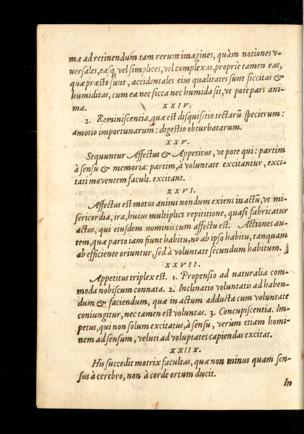 mæ ad retinendum tam rerum imagines, quàm notiones v-
uersales, easq; vel simplices, vel complexas. proprie tamen eas,
quæ præsto sunt, accidentales eius qualitates sunt siccitas &
humiditas, cum ea nec sicca nec humida sit, vt pote pars ani-
mæ.
XXIV.
2. Reminiscentia, quæ est disquisitio tectarũ specierum:
amotio importunarum: digestio obturbatarum.
XXV.
Sequuntur Affectus & Appetitus, vt pote qui: partim
à sensu & memoria: partim, à voluntate excitantur, exci-
tati mouentem facult. excitant.
XXVI.
Affectus est motus animi nondum exiens in actũ, vt mi-
sericordia, ira, huius multiplici repititione, quasi fabricatur
actus, qui eiusdem nominis cum affectu est. Actiones au-
tem, quæ parto iam fiunt habitu, nõ ab ipso habitu, tanquam
ab efficiente oriuntur, sed à voluntate secundum habitum.
XXVII.
Appetitus triplex est. 1. Propensio ad naturalia com-
moda nobiscum connata. 2. Inclinatio voluntatis ad haben-
dum & faciendum, quæ in actum adducta cum voluntate
coniungitur, nec tamen est voluntas. 3. Concupiscentia. Im-
petus, qui non solum excitatus, à sensu, verùm etiam homi-
nem ad sensum, veluti ad voluptates capiendas excitat.
XXIIX.
His succedit motrix facultas, quæ non minus quam sen-
sus à cerebro, non à corde ortum ducit.
In